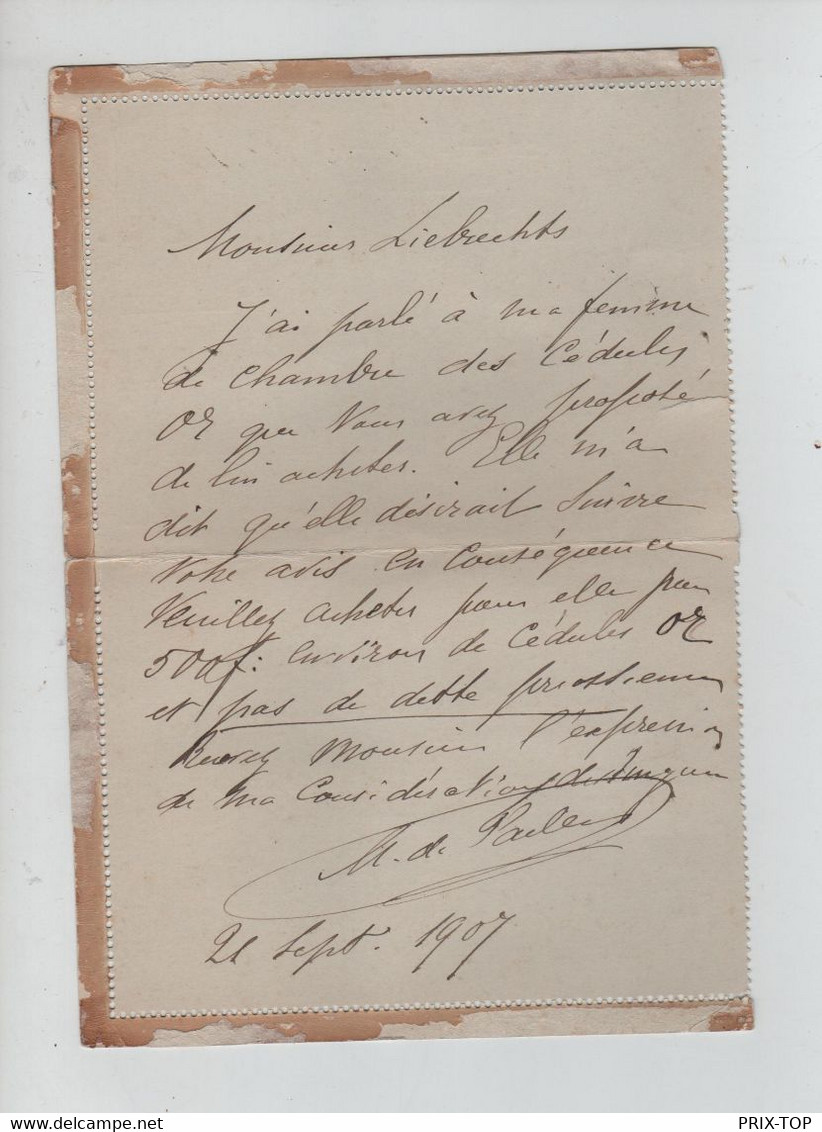 Monsieur Liebrechts
J'ai parlé à ma femme
de chambre des Cédules
or que Vous avez proposé
de lui acheter. Elle m'a
dit qu'elle désirait suivre
votre avis en Conséquence
Veuillez acheter pour elle pour
500f: environ de Cédules or
et pas de dette
Recevez Monsieur l'expression
de ma Considération distinguée
M. de
21 Sept. 1907
PRIX-TOP